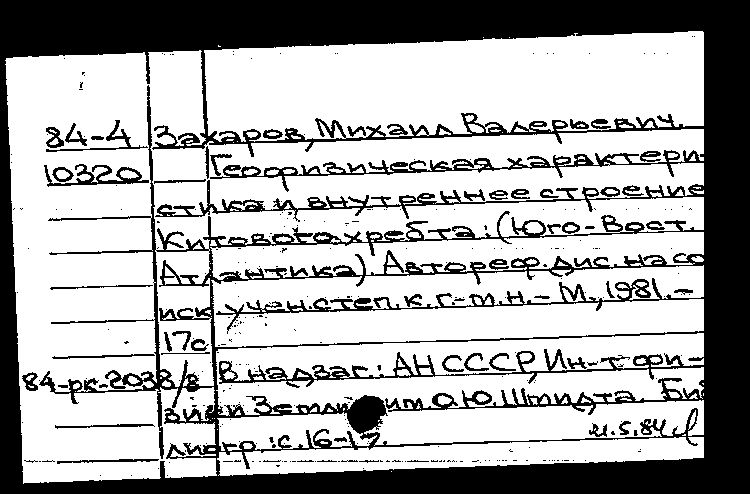 84-4 Захаров, Михаил Валерьевич.
10320 Геофизическая характери-
стика и внутреннее строение
Китового хребта: (Юго-Вост.
Атлантика). Автореф. дис. на со
иск. учен. степ. к. г.-м. н. - М., 1981. -
17с
84-рк-2038/8 В надзаг.: АН СССР, Ин-т фи-
зики Земли им. О.Ю. Шмидта. Биб
лиогр.: с. 16-17.
21.5.84